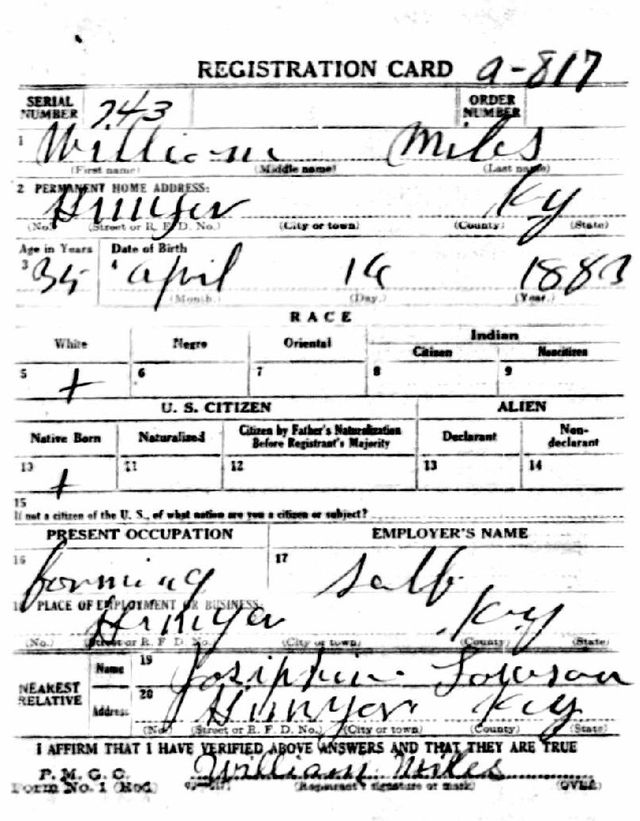 REGISTRATION CARD a-817
SERIAL NUMBER 743 ORDER NUMBER
1 William Miles
(First name) (Middle name) (Last name)
2 PERMANENT HOME ADDRESS:
Ky
(No.) (Street or R. F. D. No.) (City or town) (County) (State)
Age in Years Date of Birth
3 35 4 April 16 1883
(Month.) (Day.) (Year.)
RACE
White Negro Oriental Indian
Citizen Noncitizen
5 + 6 7 8 9
U. S. CITIZEN ALIEN
Native Born Naturalized Citizen by Father's Naturalization Before Registrant's Majority Declarant Non-declarant
10 + 11 12 13 14
15
If not a citizen of the U. S., of what nation are you a citizen or subject?
PRESENT OCCUPATION EMPLOYER'S NAME
16 forming 17 Self
18 PLACE OF EMPLOYMENT OR BUSINESS:
Ky
(No.) (Street or R. F. D. No.) (City or town) (County) (State)
NEAREST RELATIVE
Name 19 Josiphine Lawson
Address 20 Ky
(No.) (Street or R. F. D. No.) (City or town) (County) (State)
I AFFIRM THAT I HAVE VERIFIED ABOVE ANSWERS AND THAT THEY ARE TRUE
P. M. G. O. William Miles
Form No. 1 (Red) (Registrant's signature or mark) (OVER)